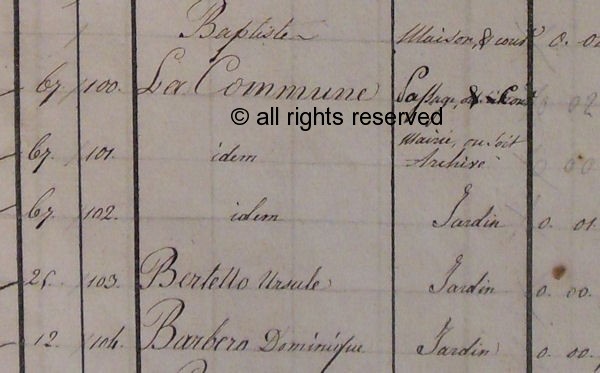 Baptiste Maison, & cour 0. 00
67. 100. La Commune Passage, & Cour 0 02
© all rights reserved
67. 101. idem Mairie, ou soit
Archive 0 00
67. 102. idem Jardin 0. 01
25. 103. Bertello Ursule Jardin 0. 00.
12. 104. Barbero Dominique Jardin 0. 00.